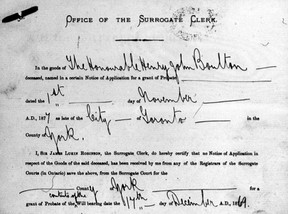 OFFICE OF THE SURROGATE CLERK.
In the goods of The Honourable Henry John Boulton
deceased, named in a certain Notice of Application for a grant of Probate
dated the 1st day of November
A.D., 187 as late of the City of Toronto in the
County York.
I, SIR JAMES LUKIN ROBINSON, the Surrogate Clerk, do hereby certify that no Notice of Application in
respect of the Goods of the said deceased, has been received by me from any of the Registrars of the Surrogate
Courts (in Ontario) save the above, from the Surrogate Court for the
County of York for a
grant of Probate of the Will bearing date the 17th December A.D., 1869.